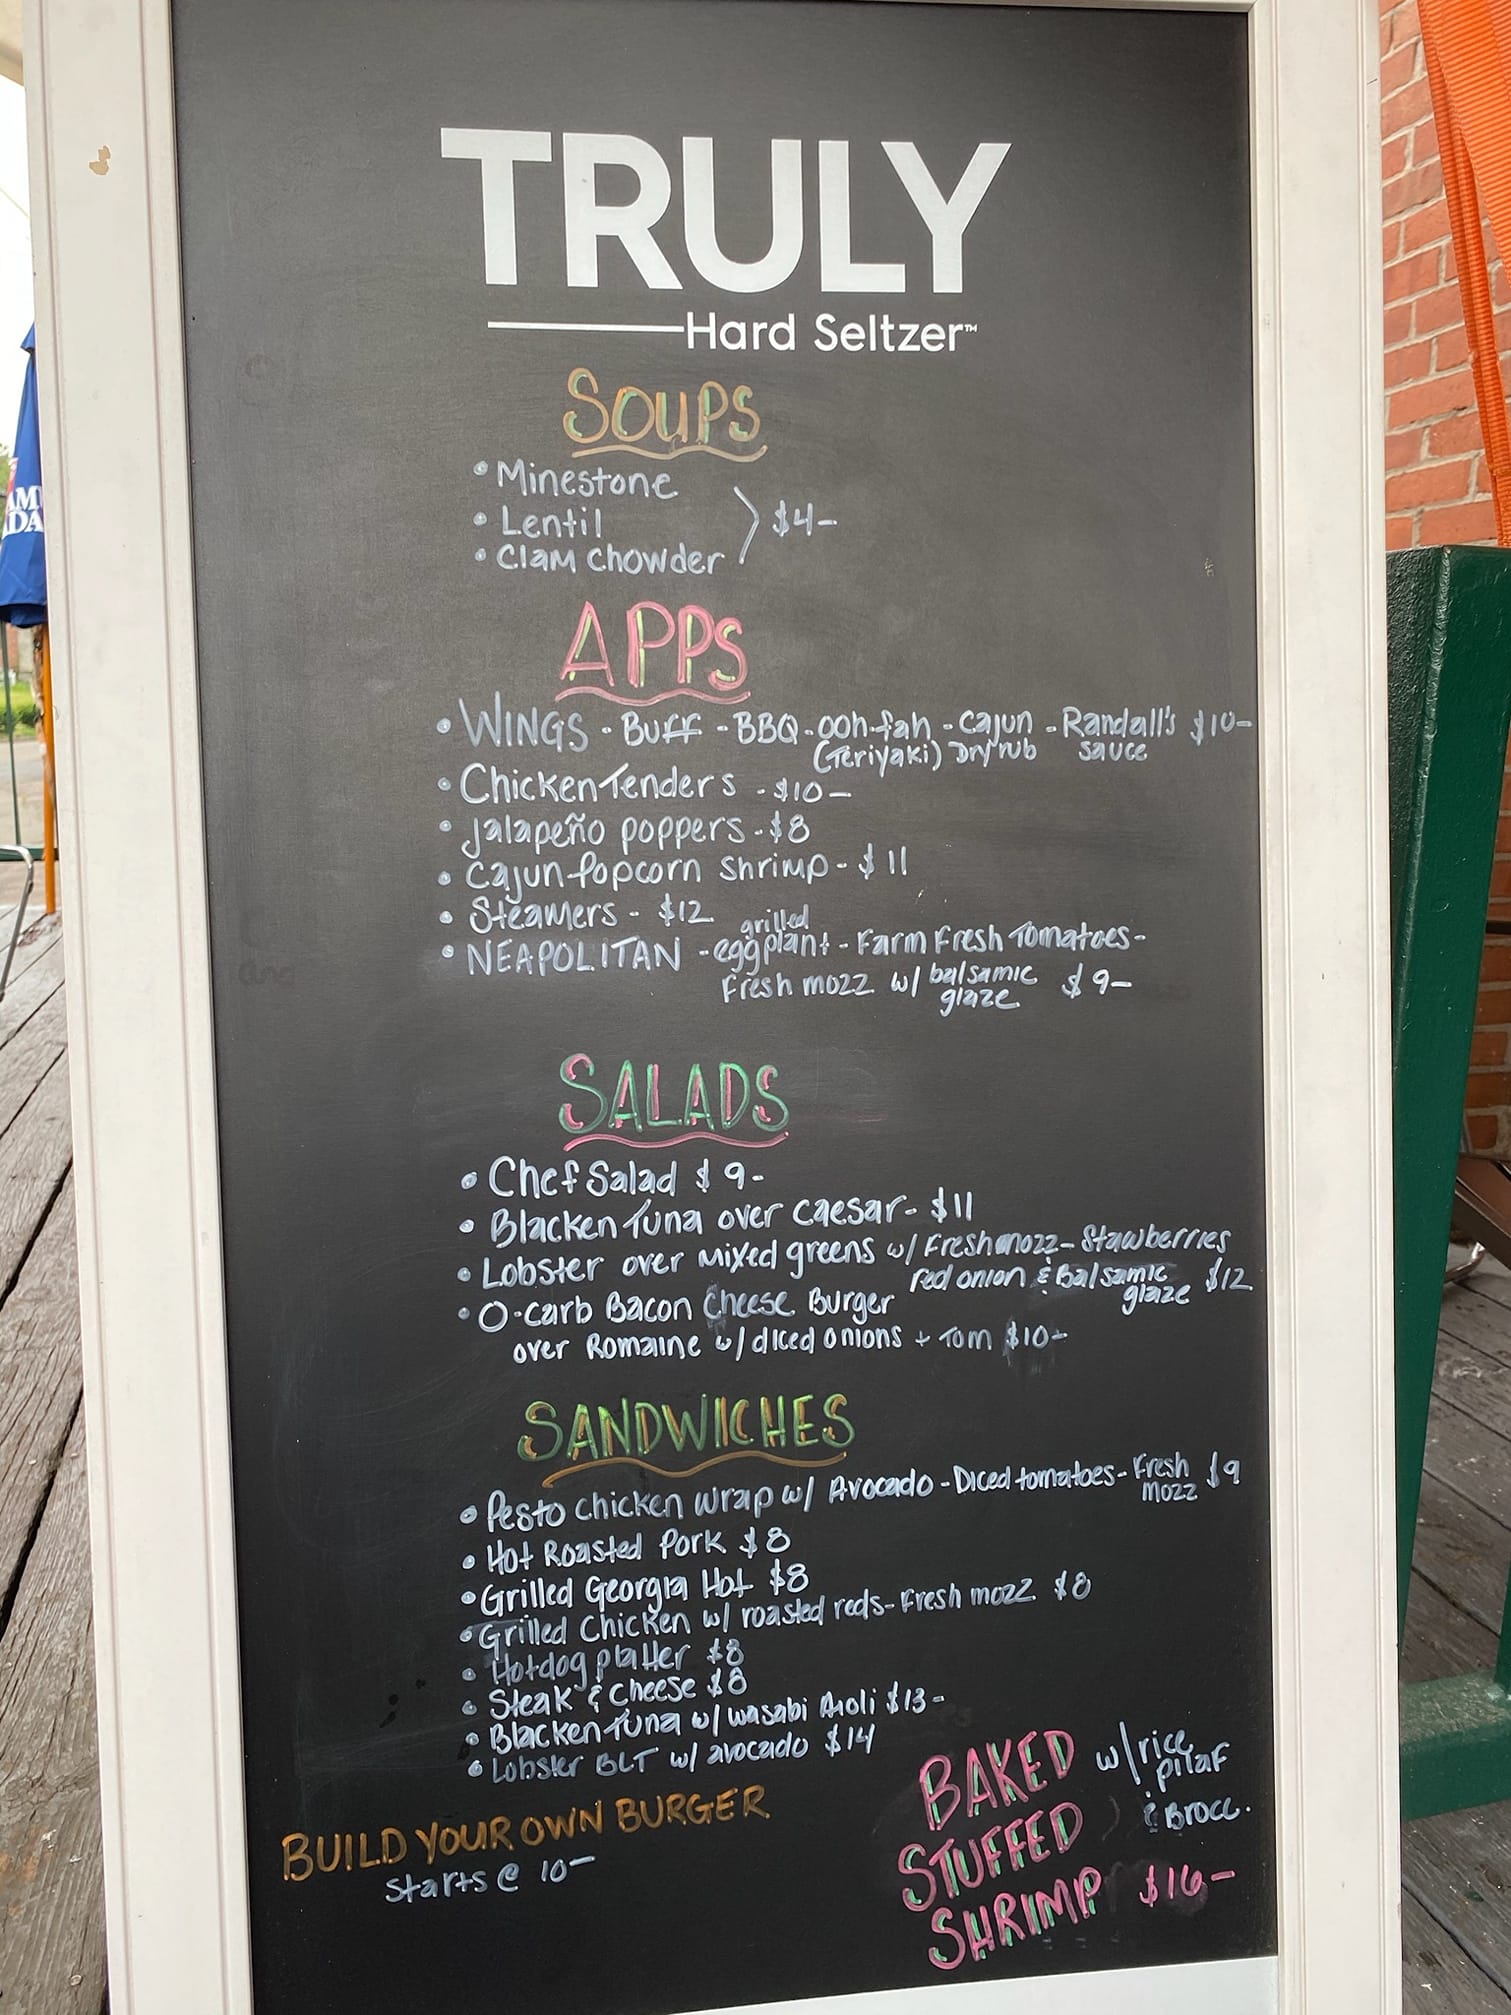 TRULY
Hard Seltzer™
SOUPS
• Minestone
• Lentil
• Clam Chowder
$4-
APPS
• WINGS - Buff - BBQ - ooh-fah - Cajun - Randall's $10-
(Teriyaki) Dry rub sauce
• Chicken Tenders - $10-
• Jalapeño poppers - $8
• Cajun Popcorn Shrimp - $11
• Steamers - $12
grilled
• NEAPOLITAN - eggplant - Farm Fresh Tomatoes -
Fresh mozz w/ balsamic $9-
glaze
SALADS
• Chef Salad $9-
• Blacken Tuna over caesar - $11
• Lobster over mixed greens w/ Fresh mozz - Stawberries
red onion & Balsamic $12
glaze
• O-carb Bacon Cheese Burger
over Romaine w/ diced onions + Tom $10-
SANDWICHES
• Pesto chicken wrap w/ Avocado - Diced tomatoes - Fresh $9
mozz
• Hot Roasted Pork $8
• Grilled Georgia Hot $8
• Grilled Chicken w/ roasted reds - Fresh mozz $8
• Hotdog platter $8
• Steak & Cheese $8
• Blacken Tuna w/ wasabi Aioli $13-
• Lobster BLT w/ avocado $14
BUILD YOUR OWN BURGER
Starts @ 10-
BAKED
STUFFED
SHRIMP $16-
w/ rice
pilaf
& Brocc.